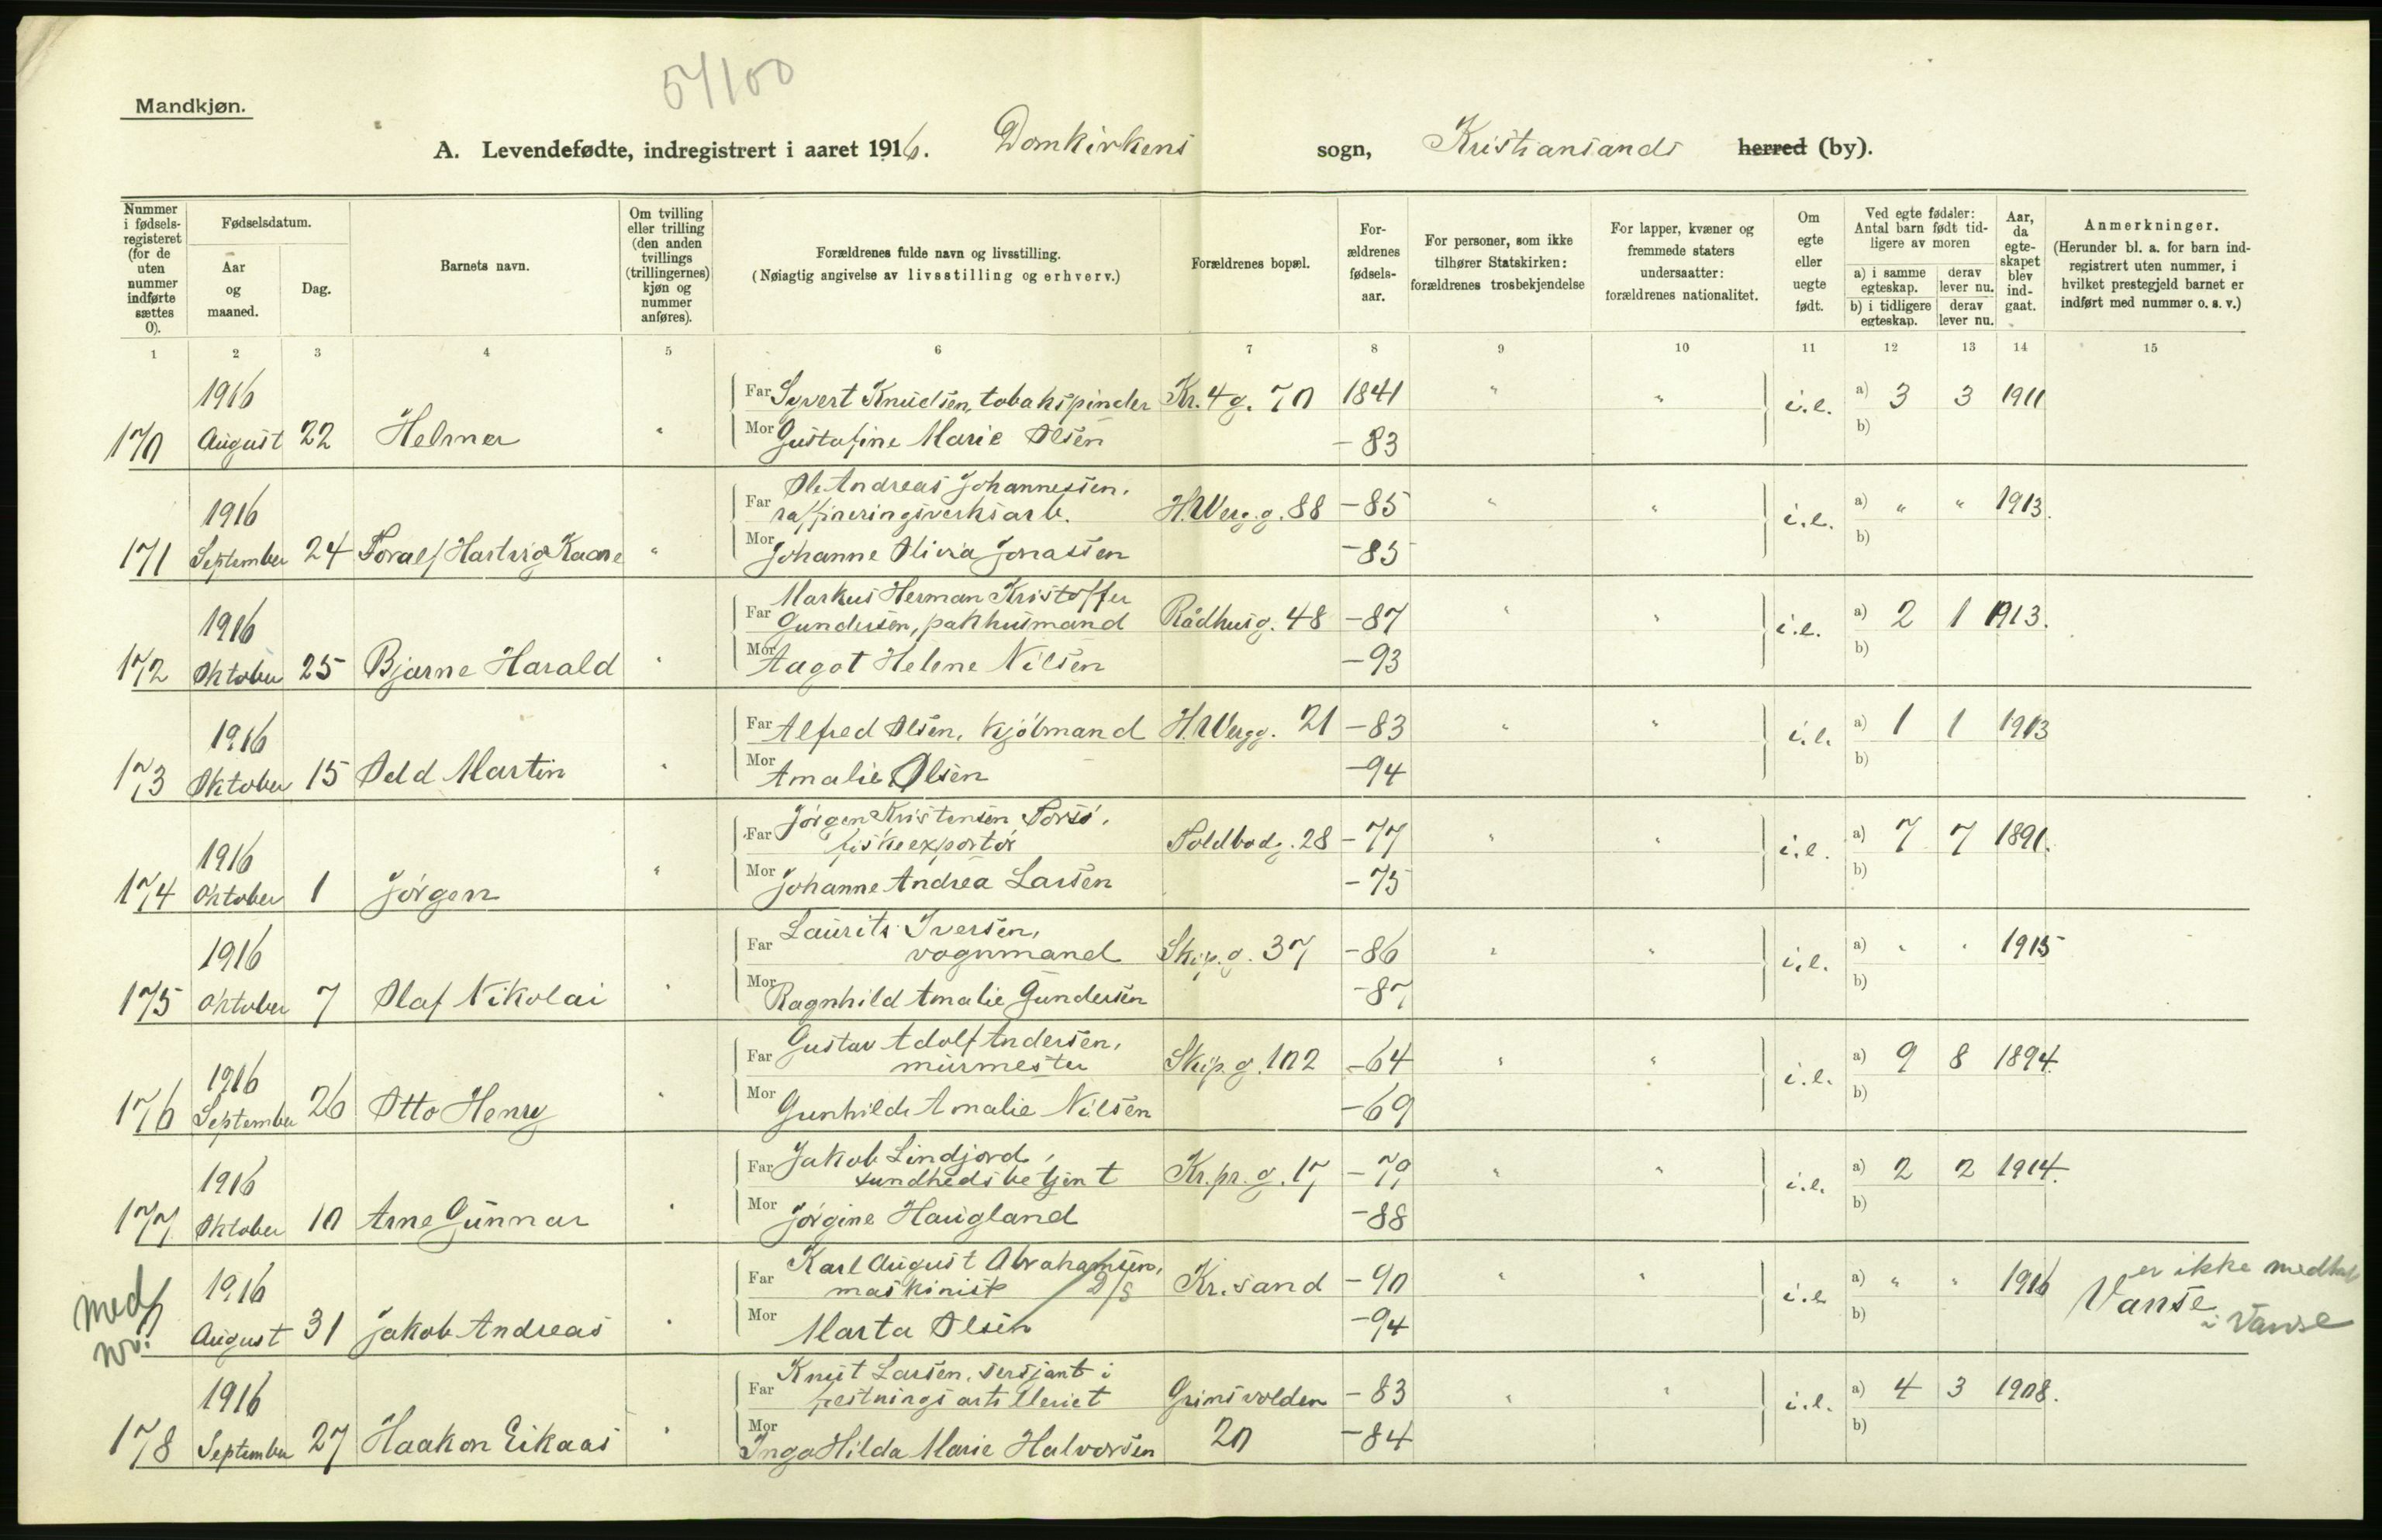 54/100
Mandkjøn.
A. Levendefødte, indregistrert i aaret 1916. Domkirkens sogn, Kristiansands herred (by).
Nummer i fødsels-registeret (for de uten nummer indførte sættes 0).
Fødselsdatum.
Aar og maaned.
Dag.
Barnets navn.
Om tvilling eller trilling (den anden tvillings (trillingernes) kjøn og nummer anføres).
Forældrenes fulde navn og livsstilling.
(Nøiagtig angivelse av livsstilling og erhverv.)
Forældrenes bopæl.
For-ældrenes fødsels-aar.
For personer, som ikke tilhører Statskirken: forældrenes trosbekjendelse
For lapper, kvæner og fremmede staters undersaatter: forældrenes nationalitet.
Om egte eller uegte født.
Ved egte fødsler: Antal barn født tid-ligere av moren
a) i samme egteskap. derav lever nu.
b) i tidligere egteskap. derav lever nu.
Aar, da egte-skapet blev ind-gaat.
Anmerkninger.
(Herunder bl. a. for barn ind-registrert uten nummer, i hvilket prestegjeld barnet er indført med nummer o. s. v.)
1 2 3 4 5 6 7 8 9 10 11 12 13 14 15
1916 Far Syvert Knudsen, tobakspinder Kr. 4 g. 70 1841 " " i.e. a) 3 3 1911
170 August 22 Helmer " Mor Gustafine Marie Olsen -83 b)
Ole Andreas Johannessen,
1916 Far raffineringsverksarb. H.Werg.g. 88 -85 " " i.e. a) " " 1913.
171 September 24 Toralf Hartvig Kaare " Mor Johanne Olivia Jonassen -85 b)
Markus Herman Kristoffer
1916 Far Gundersen, pakhusmand Rådhusg. 48 -87 " " i.e. a) 2 1 1913.
172 Oktober 25 Bjarne Harald " Mor Aagot Helene Nilsen -93 b)
1916 Far Alfred Olsen, kjöbmand H.Wergg. 21 -83 " " i.e. a) 1 1 1913
173 Oktober 15 Odd Martin " Mor Amalie Olsen -94 b)
Jörgen Kristensen Torsö,
1916 Far fiskeexportör Toldbodg. 28 -77 " " i.e. a) 7 7 1891.
174 Oktober 1 Jörgen " Mor Johanne Andrea Larsen -75 b)
Laurits Iversen,
1916 Far vognmand Skip.g. 37 -86 " " i.e. a) " " 1915
175 Oktober 7 Olaf Nikolai " Mor Ragnhild Amalie Gundersen -87 b)
Gustav Adolf Andersen,
1916 Far murmester Skip.g. 102 -64 " " i.e. a) 9 8 1894.
176 September 26 Otto Henry " Mor Gunhilde Amalie Nilsen -69 b)
Jakob Lindjord,
1916 Far sundhedsbetjent Kr.pr.g. 17 -79 " " i.e. a) 2 2 1914.
177 Oktober 10 Arne Gunnar " Mor Jörgine Haugland -88 b)
Karl August Abrahamsen,
1916 Far maskinist D/S Kr.sand -90 " " i.e. a) " " 1916 Vanse er ikke medtat
med nr. August 31 Jakob Andreas " Mor Marta Olsen -94 b) i Vanse
Knut Larsen, sersjant i
1916 Far festningsartilleriet Grimsvolden -83 " " i.e. a) 4 3 1908.
178 September 27 Haakon Eikaas " Mor Inga Hilda Marie Halvorsen 20 -84 b)